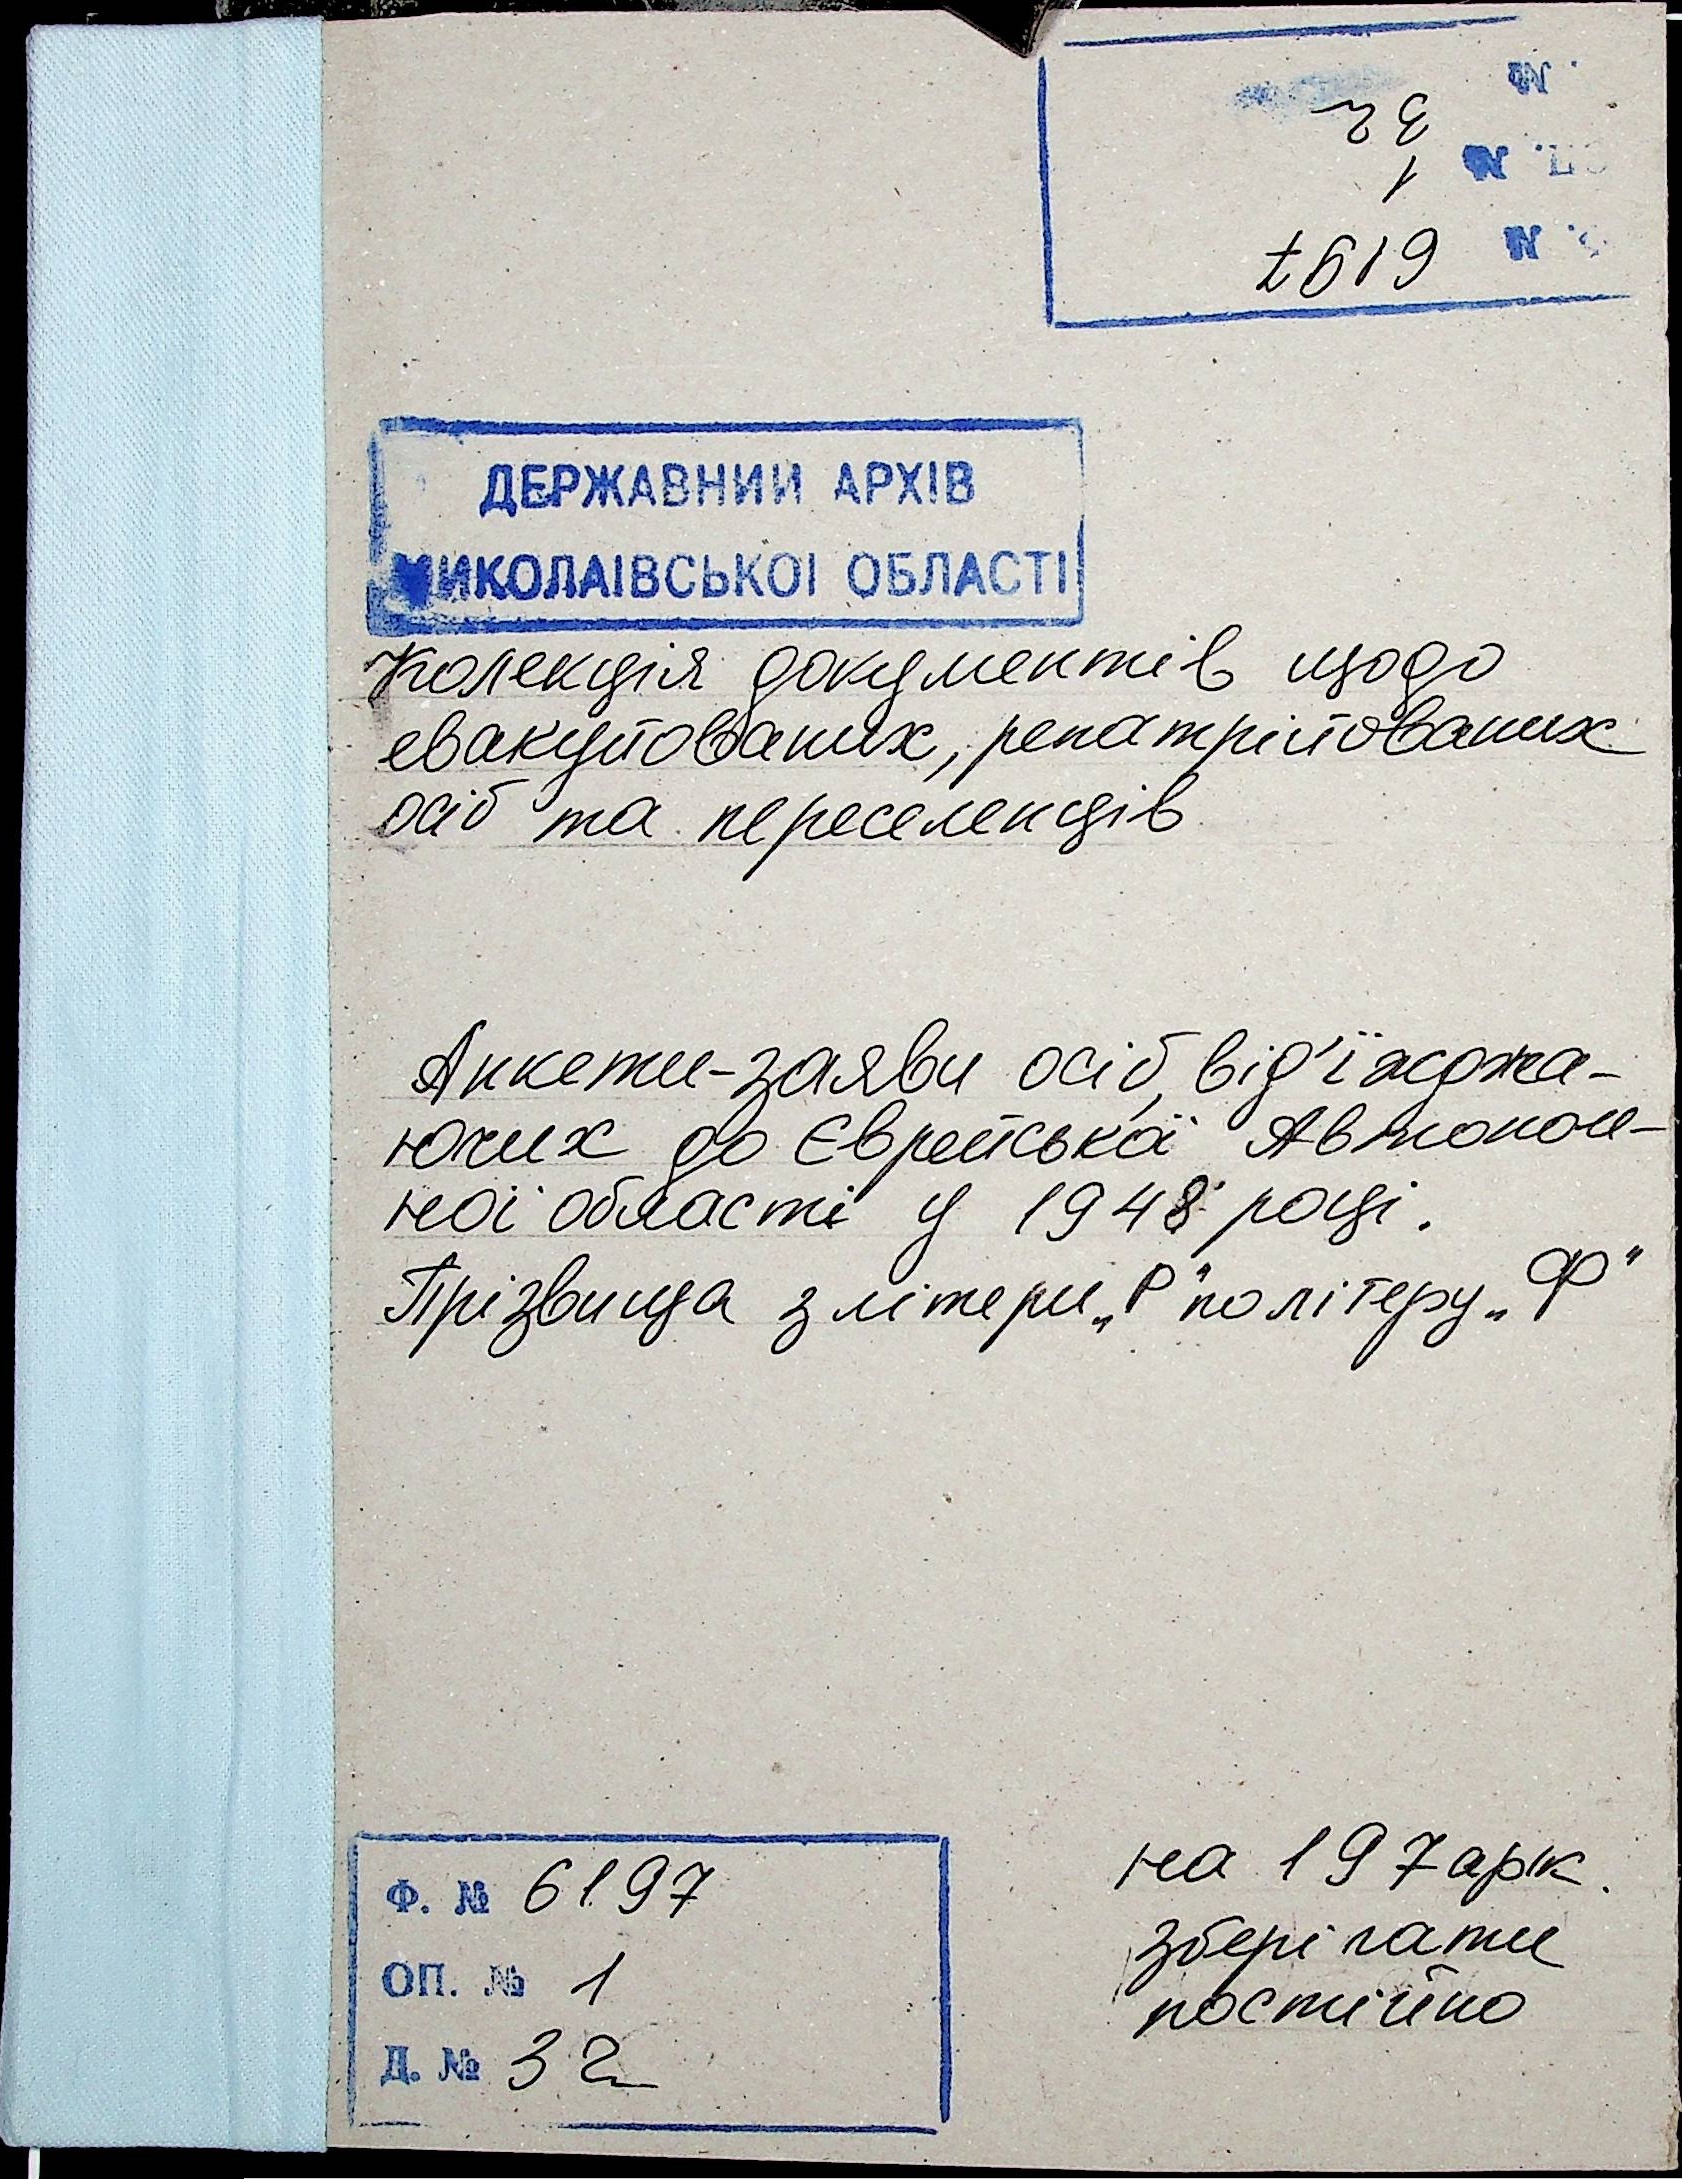 Д. № 32
ОП. № 1
Ф. № 6197
ДЕРЖАВНИЙ АРХІВ
МИКОЛАЇВСЬКОЇ ОБЛАСТІ
Колекція документів щодо
евакуйованих, репатрійованих
осіб та переселенців
Анкети-заяви осіб, від'їжджа-
ючих до Єврейської Автоном-
ної області у 1948 році.
Прізвища з літери „Р" по літеру „Ф"
на 197 арк.
зберігати
постійно
Ф. № 6197
ОП. № 1
Д. № 32